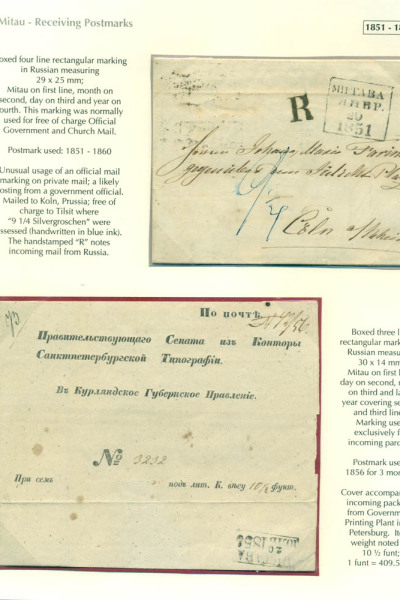 Mitau - Receiving Postmarks
1851 - 1
oxed four line rectangular marking
in Russian measuring
29 x 25 mm;
Mitau on first line, month on
second, day on third and year on
fourth. This marking was normally
used for free of charge Official
Government and Church Mail.
Postmark used: 1851 - 1860
Unusual usage of an official mail
marking on private mail; a likely
osting from a government official.
Mailed to Koln, Prussia; free of
charge to Tilsit where
"9 1/4 Silvergroschen" were
ssessed (handwritten in blue ink).
The handstamped "R" notes
incoming mail from Russia.
R
МИТАВА
ЯНВР.
20
1851
Cöln
По почтѣ.
Правительствующаго Сената изъ Конторы
Санктпетербургской Типографіи.
Въ Курляндское Губернское Правленіе.
№ 3232
При семъ
подъ лит. К. вѣсу 10½ фунт.
МИТАВА
20
1856
Boxed three l
rectangular mark
Russian measu
30 x 14 mm
Mitau on first l
day on second,
on third and la
year covering se
and third line
Marking use
exclusively f
incoming parc
Postmark use
1856 for 3 mon
Cover accompa
incoming pack
from Governm
Printing Plant in
Petersburg. It
weight noted
10 ½ funt;
1 funt = 409.5